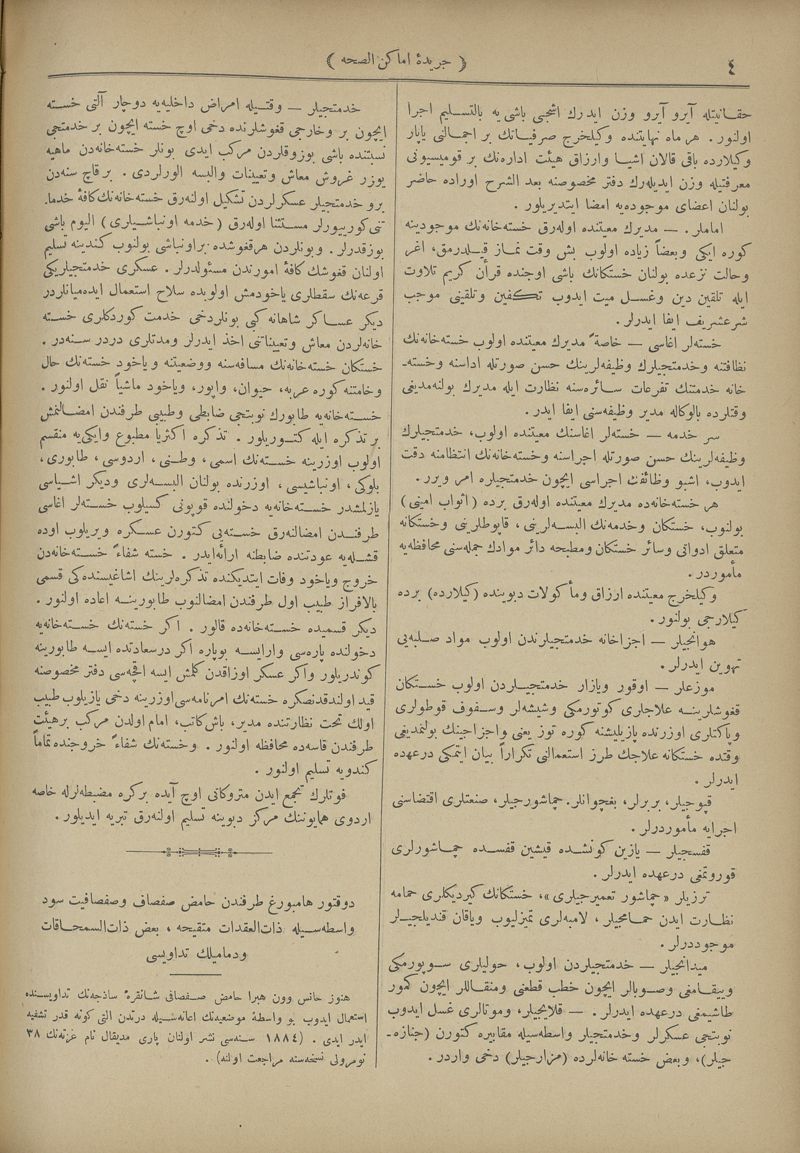 ٤
( جریدهٔ اماكن الصحه )
حقانیتله آیرو آیرو وزن ایدرك اشجی باشی یه بالتسلیم اجرا
اولنور . هر ماه نهایتنده وكیلخرج صرفیاتك بر اجمالی یاپار
وكیلارده باقی قالان اشیا وارزاق هیئت اداره‌نك بر قومیسیونی
معرفتیله وزن ایدیله‌رك دفتر مخصوصنه بعد الشرح اوراده حاضر
بولنان اعضای موجوده‌یه امضا ایتدیریلور .
اماملر . — مدیرك معیتنده اوله‌رق خسته‌خانه‌نك موجودینه
كوره ایكی وبعضاً زیاده اولوب بش وقت نماز قیلدرمق، اغر
وحالت نزعده بولنان خستكانك باشی اوجنده قرآن كریم تلاوت
ایله تلقین دین وغسل میت ایدوب تكفین وتلقینی موجب
شرعشریف ایفا ایدرلر .
خسته‌لر اغاسی — خاصةً مدیرك معیتنده اولوب خسته‌خانه‌نك
نظافتنه وخدمتجیلرك وظیفه‌لرینك حسن صورتله اداسنه وخسته‌ـ
خانه خدمتنك تفرعات سائره‌سنه نظارت ایله مدیرك بولنه‌مدیغی
وقتلرده بالوكاله مدیر وظیفه‌سنی ایفا ایدر .
سر خدمه — خسته‌لر اغاسنك معیتنده اولوب، خدمتجیلرك
وظیفه‌لرینك حسن صورتله اجراسنه وخسته‌خانه‌نك انتظامنه دقت
ایدوب، اشبو وظائفك اجراسی ایچون خدمتجیلره امر ویرر .
هر خسته‌خانه‌ده مدیرك معیتنده اوله‌رق برده (اثواب امینی)
بولنوب، خستكان وخدمه‌نك البسه‌لرینی، قاپوطلرینی وخستكانه
متعلق ادواتی وسائر خستكان ومطبخه دائر موادك جمله‌سنی محافظه‌یه
مأموردر .
وكیلخرج معیتنده ارزاق ومأكولات دیوینده (كیلارده) برده
كیلارجی بولنور .
هوانجیلر — اجزاخانه خدمتجیلرندن اولوب مواد صلبه‌یی
تهوین ایدرلر .
موزعلر — اوقور ویازار خدمتجیلردن اولوب خستكان
قغوشلرینه علاجلری كوتورمكی وشیشه‌لر وسفوف قوطولری
وپاكتلری اوزرنده یازیلیشنه كوره توزیعی واجزاجینك بولنمدیغی
وقتده خستكانه علاجك طرز استعمالنی تكراراً بیان ایتمكی درعهده
ایدرلر .
قپوجیلر، بربرلر، بغچوانلر، چماشورجیلر، صنعتلری اقتضاسنی
اجرایه مأموردرلر .
قفسجیلر — یازین كونشده قیشین قفسده چماشورلری
قوروتمغی درعهده ایدرلر .
ترزیلر «چماشور تعمیرجیلری»، خستكانك كیردیكلری حمامه
نظارت ایدن حمامجیلر، لامبه‌لری تمیزلیوب ویاقان قندیلجیلر
موجوددرلر .
میدانجیلر — خدمتجیلردن اولوب، حولیلری سوپورمكی
وییقامغی وصوبالر ایچون خطب قطعنی ومنقاللر ایچون كمور
طاشیمغی درعهده ایدرلر . — قلایجیلر، وموتالری غسل ایدوب
نوبتجی عسكرلر وخدمتجیلر واسطه‌سیله مقابره كتورن (جنازه‌ـ
جیلر)، وبعض خسته خانه‌لرده (مزارجیلر) دخی واردر .
خدمتجیلر — وقتیله امراض داخلیه‌یه دوچار آلتی خسته
ایچون بر وخارجی قغوشلرنده دخی اوچ خسته ایچون بر خدمتجی
نسبتنده باشی بوزوقلردن مركب ایدی بونلر خسته‌خانه‌دن ماهیه
یوزر غروش معاش وتعیینات والبسه الورلردی . بر قاچ سنه‌دن
برو خدمتجیلر عسكرلردن تشكیل اولنه‌رق خسته‌خانه‌نك كافهٔ خدماـ
تی كوریبورلر مستثنا اوله‌رق (خدمه اونباشیلری) الیوم باشی
بوزقدرلر . وبونلردن هرقغوشده بر اونباشی بولنوب كندینه تسلیم
اولنان قغوشك كافهٔ امورندن مسئولدرلر . عسكری خدمتجیلریكی
قرعه‌نك سقطلری یاخودمش اولوبده سلاح استعمال ایده‌میانلردر
دیكر عساكر شاهانه كبی بونلردخی خدمت كوردكلری خسته
خانه‌لردن معاش وتعییناتنی اخذ ایدرلر ومدتلری دردر سنه‌در .
خستكان خسته‌خانه‌نك مسافه‌سنه ووضعیتنه ویاخود خسته‌نك حال
وخامتنه كوره عربه، حیوان، واپور، ویاخود ماشیاً نقل اولنور .
خسته‌خانه‌یه طابورك نوبتجی ضابطی وطبیبی طرفندن امضالنمش
بر تذكره ایله كتوریلور . تذكره اكثریا مطبوع وایكی‌یه منقسم
اولوب اوزرینه خسته‌نك اسمی، وطنی، اردوسی، طابوری،
بلوكی، اونباشیسی، اوزرنده بولنان البسه‌لری ودیكر اشیاسی
یازلمشدر خسته‌خانه‌یه دخولنده قوپونی كسیلوب خسته‌لر اغاسی
طرفندن امضالنه‌رق خسته‌یی كتورن عسكره ویریلوب اوده
قشله‌یه عودتنده ضابطنه ارائه‌ایدر . خسته شفاءً خسته‌خانه‌دن
خروج ویاخود وفات ایتدیكنده تذكره‌لرینك اشاغیسنده‌كی قسمی
بالافراز طبیب اول طرفندن امضالنوب طابورینه اعاده اولنور .
دیكر قسمیده خسته‌خانه‌ده قالور . اكر خسته‌نك خسته‌خانه‌یه
دخولنده پاره‌سی وارایسه بوپاره اكر درسعادتده ایسه طابورینه
كوندریلور واكر عسكر اوزاقدن كلمش ایسه اقچه‌سی دفتر مخصوصنه
قید اولندقدنصكره خسته‌نك امرنامه‌سی اوزرینه دخی یازیلوب طبیب
اولك تحت نظارتنده مدیر، باش‌كاتب، امام اولدن مركب برهیئت
طرفندن قاسه‌ده محافظه اولنور . وخسته‌نك شفاءً خروجنده تماماً
كندویه تسلیم اولنور .
قوتلرك تجمع ایدن متروكاتی اوچ آیده بركره مضبطه‌لرله خاصه
اردوی همایوننك مركز دیوینه تسلیم اولنه‌رق تبریه ایدیلور .
دوقتور هامبورغ طرفندن حامض صفصاف وصفصافیت سود
واسطه‌سیله ذات‌العقدات متقیحه، بعض ذات‌السمحاقات
ودمامیلك تداویسی
هنوز حانس وون هبرا حامض صفصافی شانقرهٔ ساذجه‌نك تداویسنده
استعمال ایدوب بو واسطهٔ موضعیه‌نك اعانه‌سیله درتدن التی كونه قدر تشفیه
ایدر ایدی . (١٨٨٤ سنه‌سی نشر اولنان پاری مدیقال نام غزته‌نك ٣٨
نومرولی نسخه‌سنه مراجعت اولنه) .